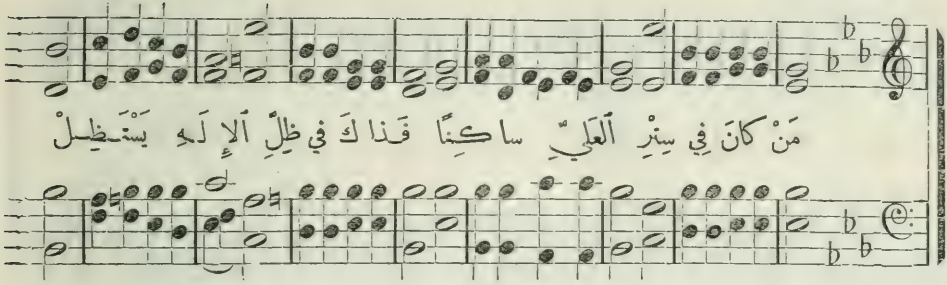 مَنْ كانَ فِي سِتْرِ ٱلعَلِيِّ ساكِنًا فَذاكَ في ظِلِّ ٱلإِلَهِ يَسْتَظِلْ